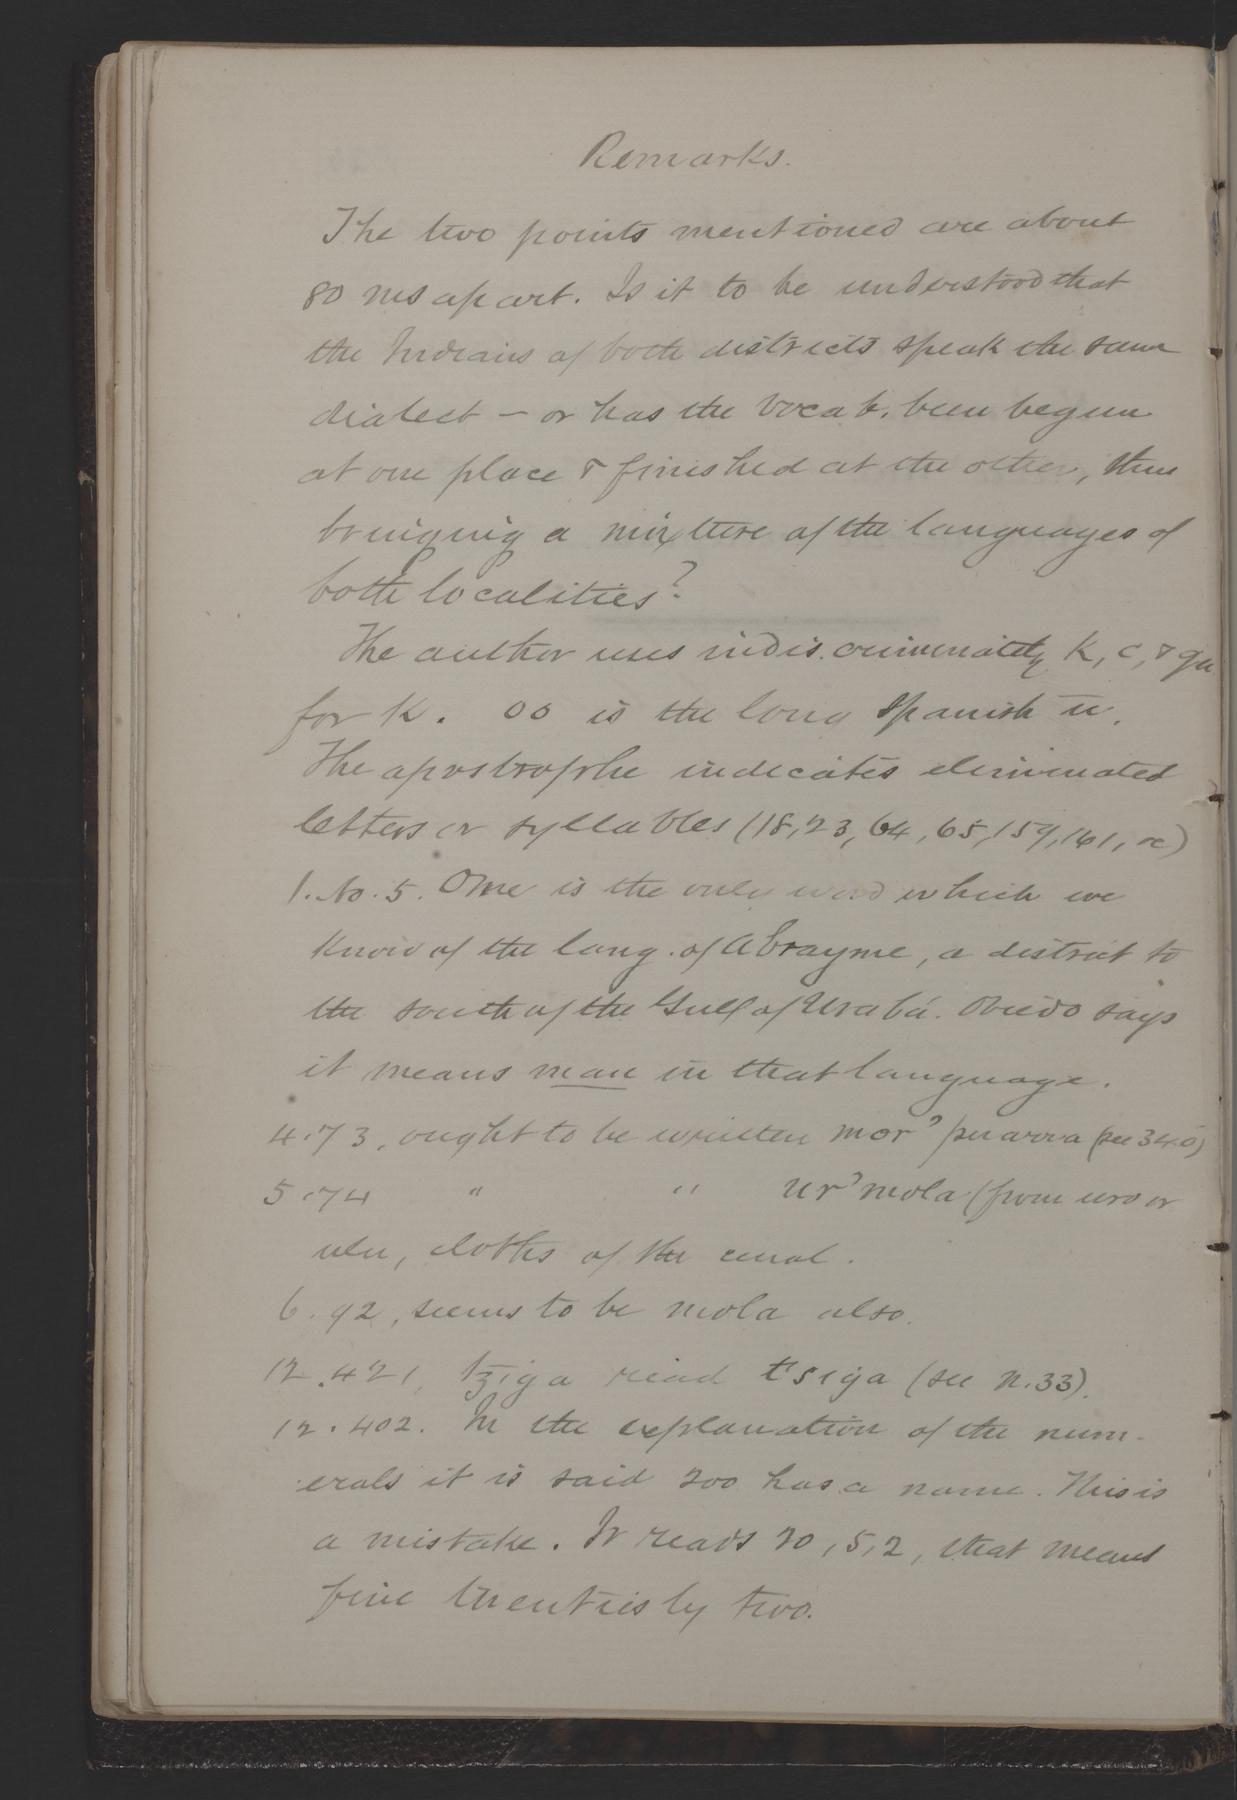 Remarks.
The two points mentioned are about
80 ms apart. Is it to be understood that
the Indians of both districts speak the same
dialect – or has the vocab. been begun
at one place & finished at the other, thus
bringing a mixture of the languages of
both localities?
The author uses indiscriminately K, c, & qu
for K. oo is the long Spanish ū.
The apostrophe indicates eliminated
letters or syllables (18, 23, 64, 65, 159, 161, &c)
1. No. 5. Ome is the only word which we
know of the lang. of Abrayme, a district to
the south of the Gulf of Urabá. Oviedo says
it means man in that language.
4.73, ought to be written mor' (see 340)
5.74 " " ur'mola (from uro or
ulu, cloths of the canal.
6.92, seems to be mola also.
12.421, tziga read t'siga (see n. 33).
12.402. In the explanation of the num-
erals it is said 200 has a name. This is
a mistake. It reads 20, 5, 2, that means
five twenties by two.